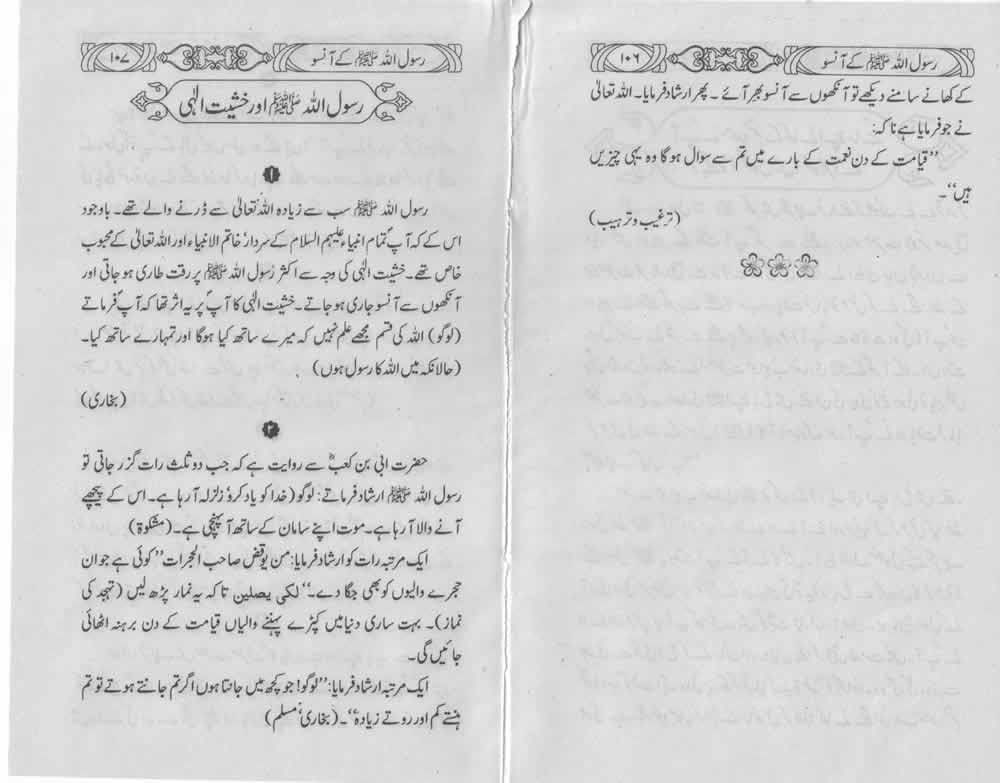 رسول اللہ ﷺ کے آنسو ۱۰۶
کے کھانے سامنے دیکھے تو آنکھوں سے آنسو بھر آئے۔ پھر ارشاد فرمایا۔ اللہ تعالیٰ
نے جو فرمایا ہے نا کہ:
”قیامت کے دن نعمت کے بارے میں تم سے سوال ہوگا وہ یہی چیزیں
ہیں“۔
(ترغیب و ترہیب)
رسول اللہ ﷺ کے آنسو ۱۰۷
رسول اللہ ﷺ اور خشیت الٰہی
۱
رسول اللہ ﷺ سب سے زیادہ اللہ تعالیٰ سے ڈرنے والے تھے۔ باوجود
اس کے کہ آپؐ تمام انبیاء علیہم السلام کے سردار‘ خاتم الانبیاء اور اللہ تعالیٰ کے محبوب
خاص تھے۔ خشیت الٰہی کی وجہ سے اکثر رسول اللہ ﷺ پر رقت طاری ہو جاتی اور
آنکھوں سے آنسو جاری ہو جاتے۔ خشیت الٰہی کا آپؐ پر یہ اثر تھا کہ آپؐ فرماتے
(لوگو) اللہ کی قسم مجھے علم نہیں کہ میرے ساتھ کیا ہوگا اور تمہارے ساتھ کیا۔
(حالانکہ میں اللہ کا رسول ہوں)
(بخاری)
۲
حضرت ابی بن کعبؓ سے روایت ہے کہ جب دو ثلث رات گزر جاتی تو
رسول اللہ ﷺ ارشاد فرماتے: لوگو (خدا کو یاد کرو‘ زلزلہ آ رہا ہے۔ اس کے پیچھے
آنے والا آ رہا ہے۔ موت اپنے سامان کے ساتھ آ پہنچی ہے۔ (مشکوۃ)
ایک مرتبہ رات کو ارشاد فرمایا: من یوقض صاحب الحجرات ”کوئی ہے جو ان
حجرے والیوں کو بھی جگا دے۔“ لکی یصلین تا کہ یہ نماز پڑھ لیں (تہجد کی
نماز)۔ بہت ساری دنیا میں کپڑے پہننے والیاں قیامت کے دن برہنہ اٹھائی
جائیں گی۔
ایک مرتبہ ارشاد فرمایا: ”لوگو! جو کچھ میں جانتا ہوں اگر تم جانتے ہوتے تو تم
ہنستے کم اور روتے زیادہ“۔ (بخاری‘ مسلم)